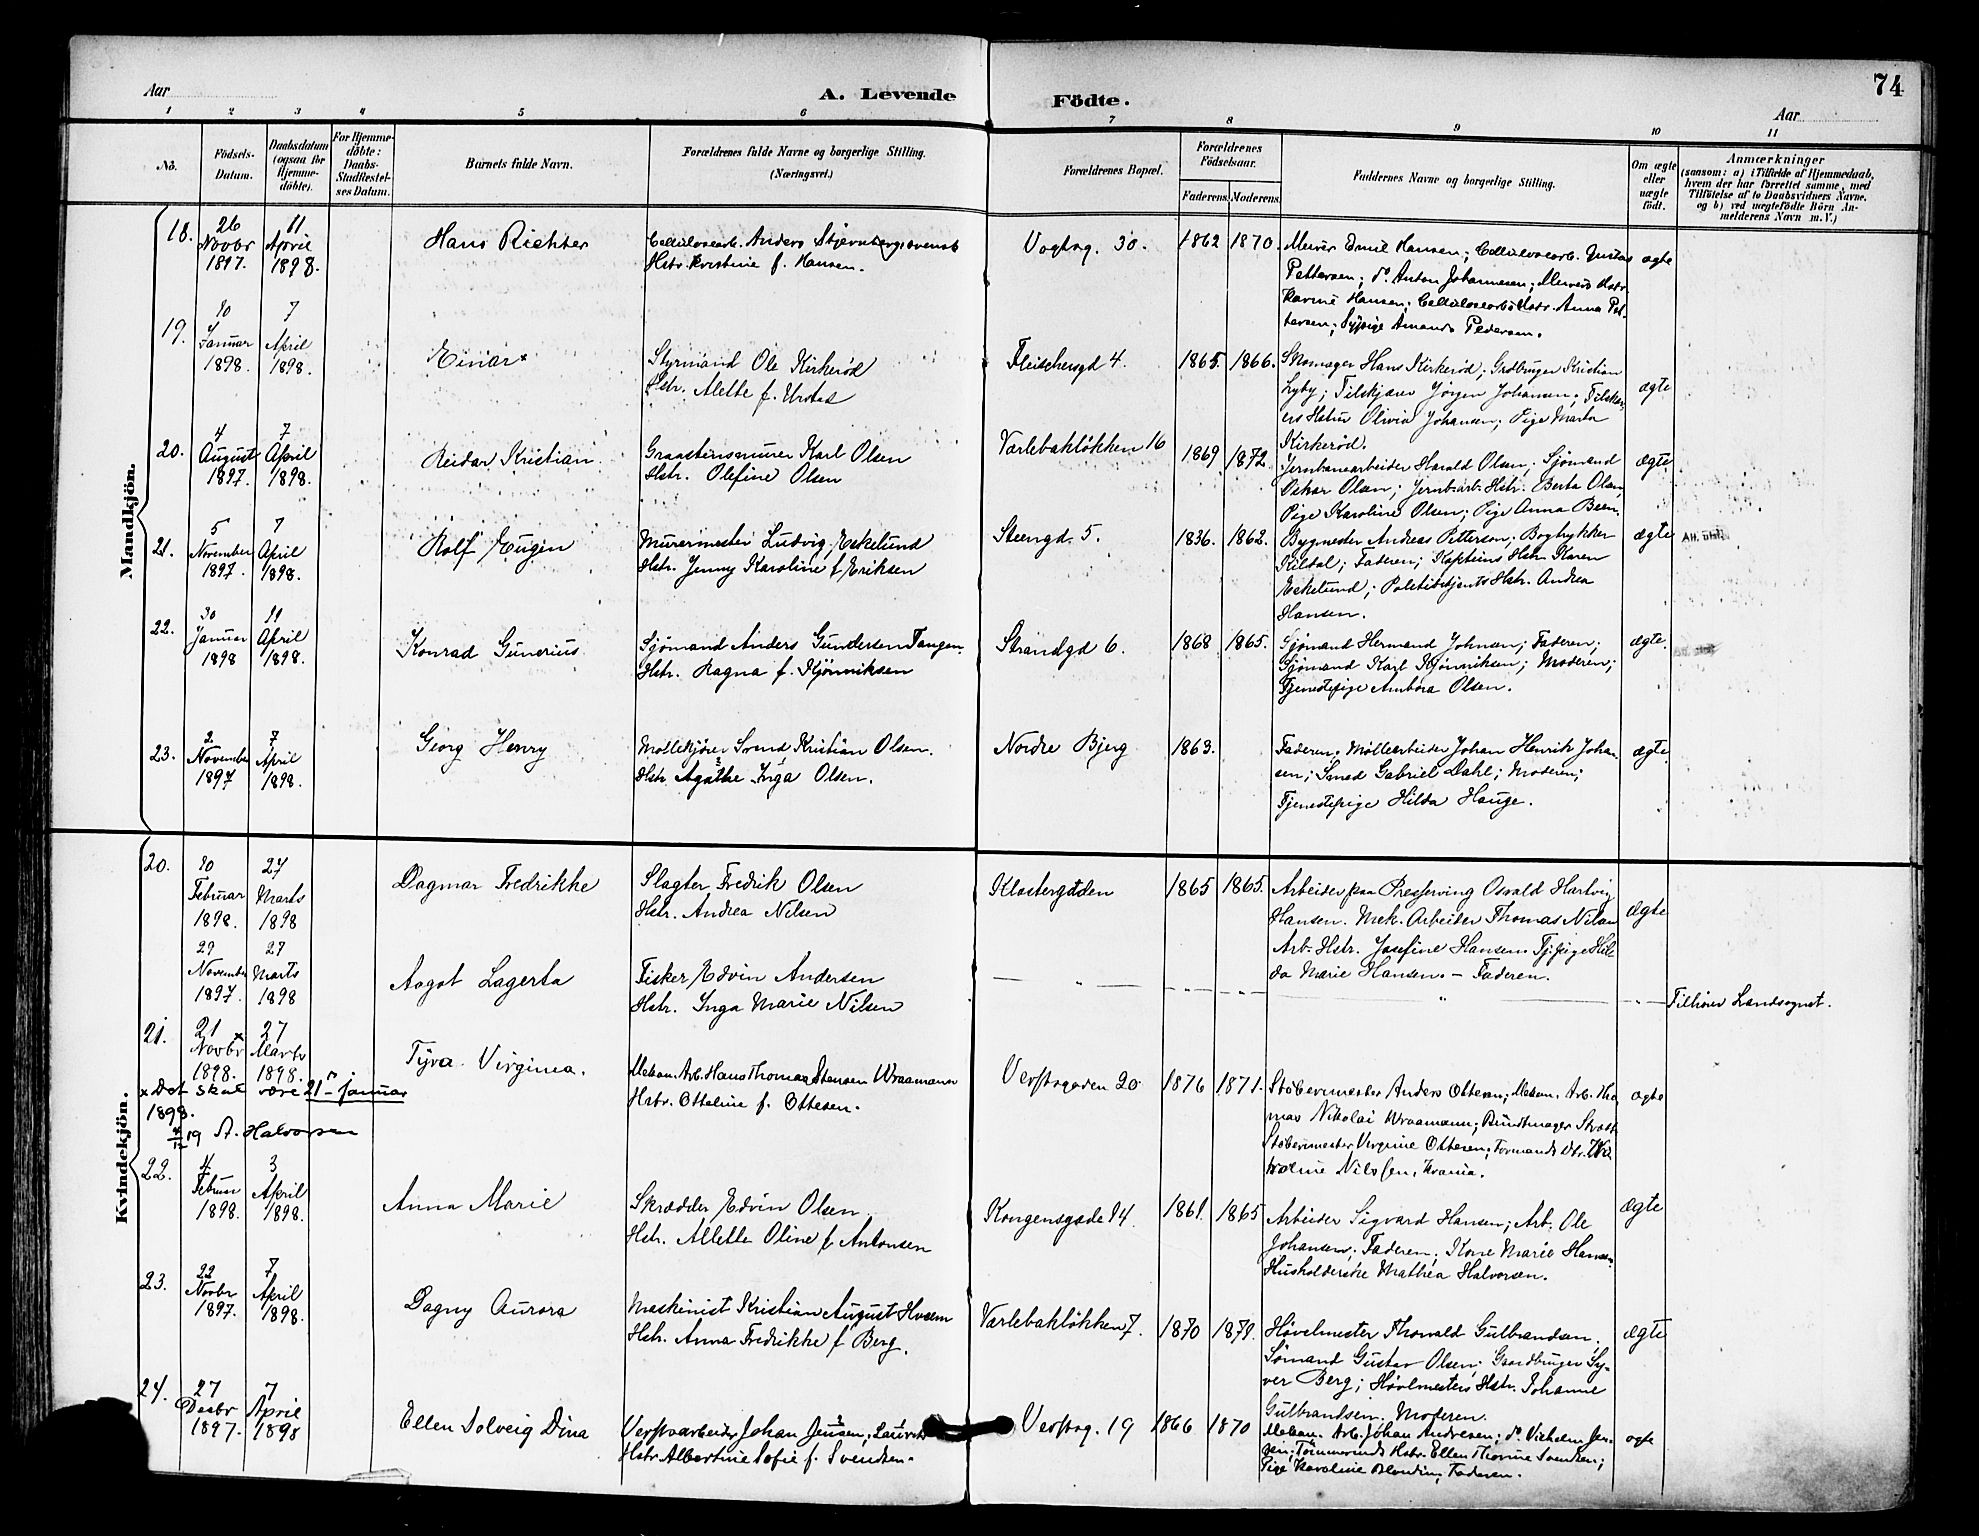 74
Aar
A. Levende Födte.
Aar
1 2 3 4 5 6 7 8 9 10 11
No.
Födsels-Datum.
Daabsdatum (ogsaa for Hjemme-döbte).
For Hjemme-döbte: Daabs-Stadfestel-ses Datum.
Barnets fulde Navn.
Forældrenes fulde Navne og borgerlige Stilling.
(Næringsvei.)
Forældrenes Bopæl.
Forældrenes Födselsaar.
Faderens. Moderens.
Faddernes Navne og borgerlige Stilling.
Om ægte eller uægte födt.
Anmærkninger
(saasom: a) i Tilfælde af Hjemmedaab,
hvem der har forrettet samme, med
Tilföielse af to Daabsvidners Navne,
og b) ved uægtefödte Börn An-
melderens Navn m. V.)
Mandkjön.
18.
26 Novbr 1897.
11 April 1898.
Hans Richter
Cellulosearb. Anders Stjernberg, svensk
Hstr. Kristine f. Hansen.
Vogtsg. 30.
1862 1870.
Murer Emil Hansen; Cellulosearb. Gustav
Pettersen; do Anton Johannesen; Murers Hstr.
Karine Hansen; Cellulosearbs Hstr. Anna Pet-
tersen; Sypige Amanda Pedersen.
ægte
19.
10 Januar 1898.
7 April 1898.
Einar
Styrmand Ole Kirkeröd
Hstr. Alette f. Urstad
Fleischersgd 4.
1865. 1866.
Skomager Hans Kirkeröd; Grdbruger Kristian
Lyby; Tilskjærer Jörgen Johansen; Tilskjær-
ers Hstru Olivia Johansen; Pige Marta
Kirkeröd.
ægte
20.
4 August 1897.
7 April 1898.
Reidar Kristian
Graastensmurer Karl Olsen
Hstr. Olefine Olsen
Varlebaklökken 16
1869 1872
Jernbanearbeider Harald Olsen; Sjömand
Oskar Olsen; Jernb.arb. Hstr. Berta Olsen,
Pige Karoline Olsen; Pige Anna Been.
ægte
21.
5 November 1897.
7 April 1898.
Rolf Eugen
Murermester Ludvig Eskelund
Hstr. Jenny Karoline f Eriksen
Steengd. 5.
1836. 1862.
Bygmester Andreas Petterson; Bogtrykker
Kildal; Faderen; Kapteins Hstr. Karen
Eskelund; Politibetjents Hstr. Andrea
Hansen.
ægte
22.
30 Januar 1898
11 April 1898.
Konrad Gunerius.
Sjömand Anders Gundersen Tangen.
Hstr. Ragna f. Kjönniksen
Strandgd 6.
1868 1865.
Sjömand Hermand Johnsen; Faderen;
Sjömand Karl Kjönniksen; Moderen;
Tjenestepige Ambora Olsen.
ægte.
23.
2. November 1897
7 April 1898.
Georg Henry
Möllekjörer Svend Kristian Olsen.
Hstr. Agathe Inga Olsen.
Nordre Bjerg
1863.
Faderen; Möllearbeider Johan Henrik Johan-
sen; Smed Gabriel Dahl; Moderen;
Tjenestepige Hilda Hauge.
ægte.
Kvindekjön.
20.
10 Februar 1898.
27 Marts 1898
Dagmar Fredrikke
Slagter Fredrik Olsen
Hstr. Andrea Nilsen
Klostergaden
1865 1865.
Arbeider paa Preserving Osvald Hartvig
Hansen. Mek. Arbeider Thomas Nilsen
Arb. Hstr. Josefine Hansen Tj.pige Hil-
da Marie Hansen. – Faderen.
ægte
29 November 1897.
27 Marts 1898
Aagot Lagerta
Fisker Edvin Andersen
Hstr. Inga Marie Nilsen
Tilhörer Landsognet.
21.
21 x Novbr 1898.
27 Marts 1898.
Tyra Virginia.
Mekan. Arb. Hans Thomas Stensen Wraamann
Hstr. Otteline f. Ottesen.
Verftsgaden 20.
1876 1871.
Stöberimester Anders Ottesen; Mekan. Arb. Tho-
mas Nikolai Wraamann; Buntmager
Stöberimester Virginie Ottesen; Formands Dtr.
Nilssen, Krania.
ægte
x Det skal være 21de januar
1898.
A. Halvorsen
22.
4 Februar 1898.
3 April 1898.
Anna Marie
Skrædder Edvin Olsen
Hstr. Allette Oline f. Antonsen
Kongensgade 14.
1861. 1865
Arbeider Sigvard Hansen; Arb. Ole
Johansen; Faderen; Kone Marie Hansen
Husholderske Mathea Halvorsen.
ægte
23.
22 Novbr 1897.
7 April 1898.
Dagny Aurora
Maskinist Kristian August Hvaem
Hstr. Anna Fredrikke f Berg.
Varlebaklökken 7.
1870 1871.
Hövelmester Thorvald Gulbrandsen.
Sömand Gustav Olsen; Gaardbruger Sy-
ver Berg; Hövelmesters Hstr. Johanne
Gulbrandsen. Moderen.
ægte
24.
27 Decbr 1897.
7 April 1898
Ellen Solveig Dina
Verftsarbeider Johan Jensen,
Hstr. Albertine Sofie f. Svendsen.
Verftsg. 19
1866 1870
Mekan. Arb. Johan Andresen; do Vilhelm Jen-
sen; Tömmermands Hstr. Ellen Thorine Svendsen;
Pige Karoline Blondin; Faderen.
ægte